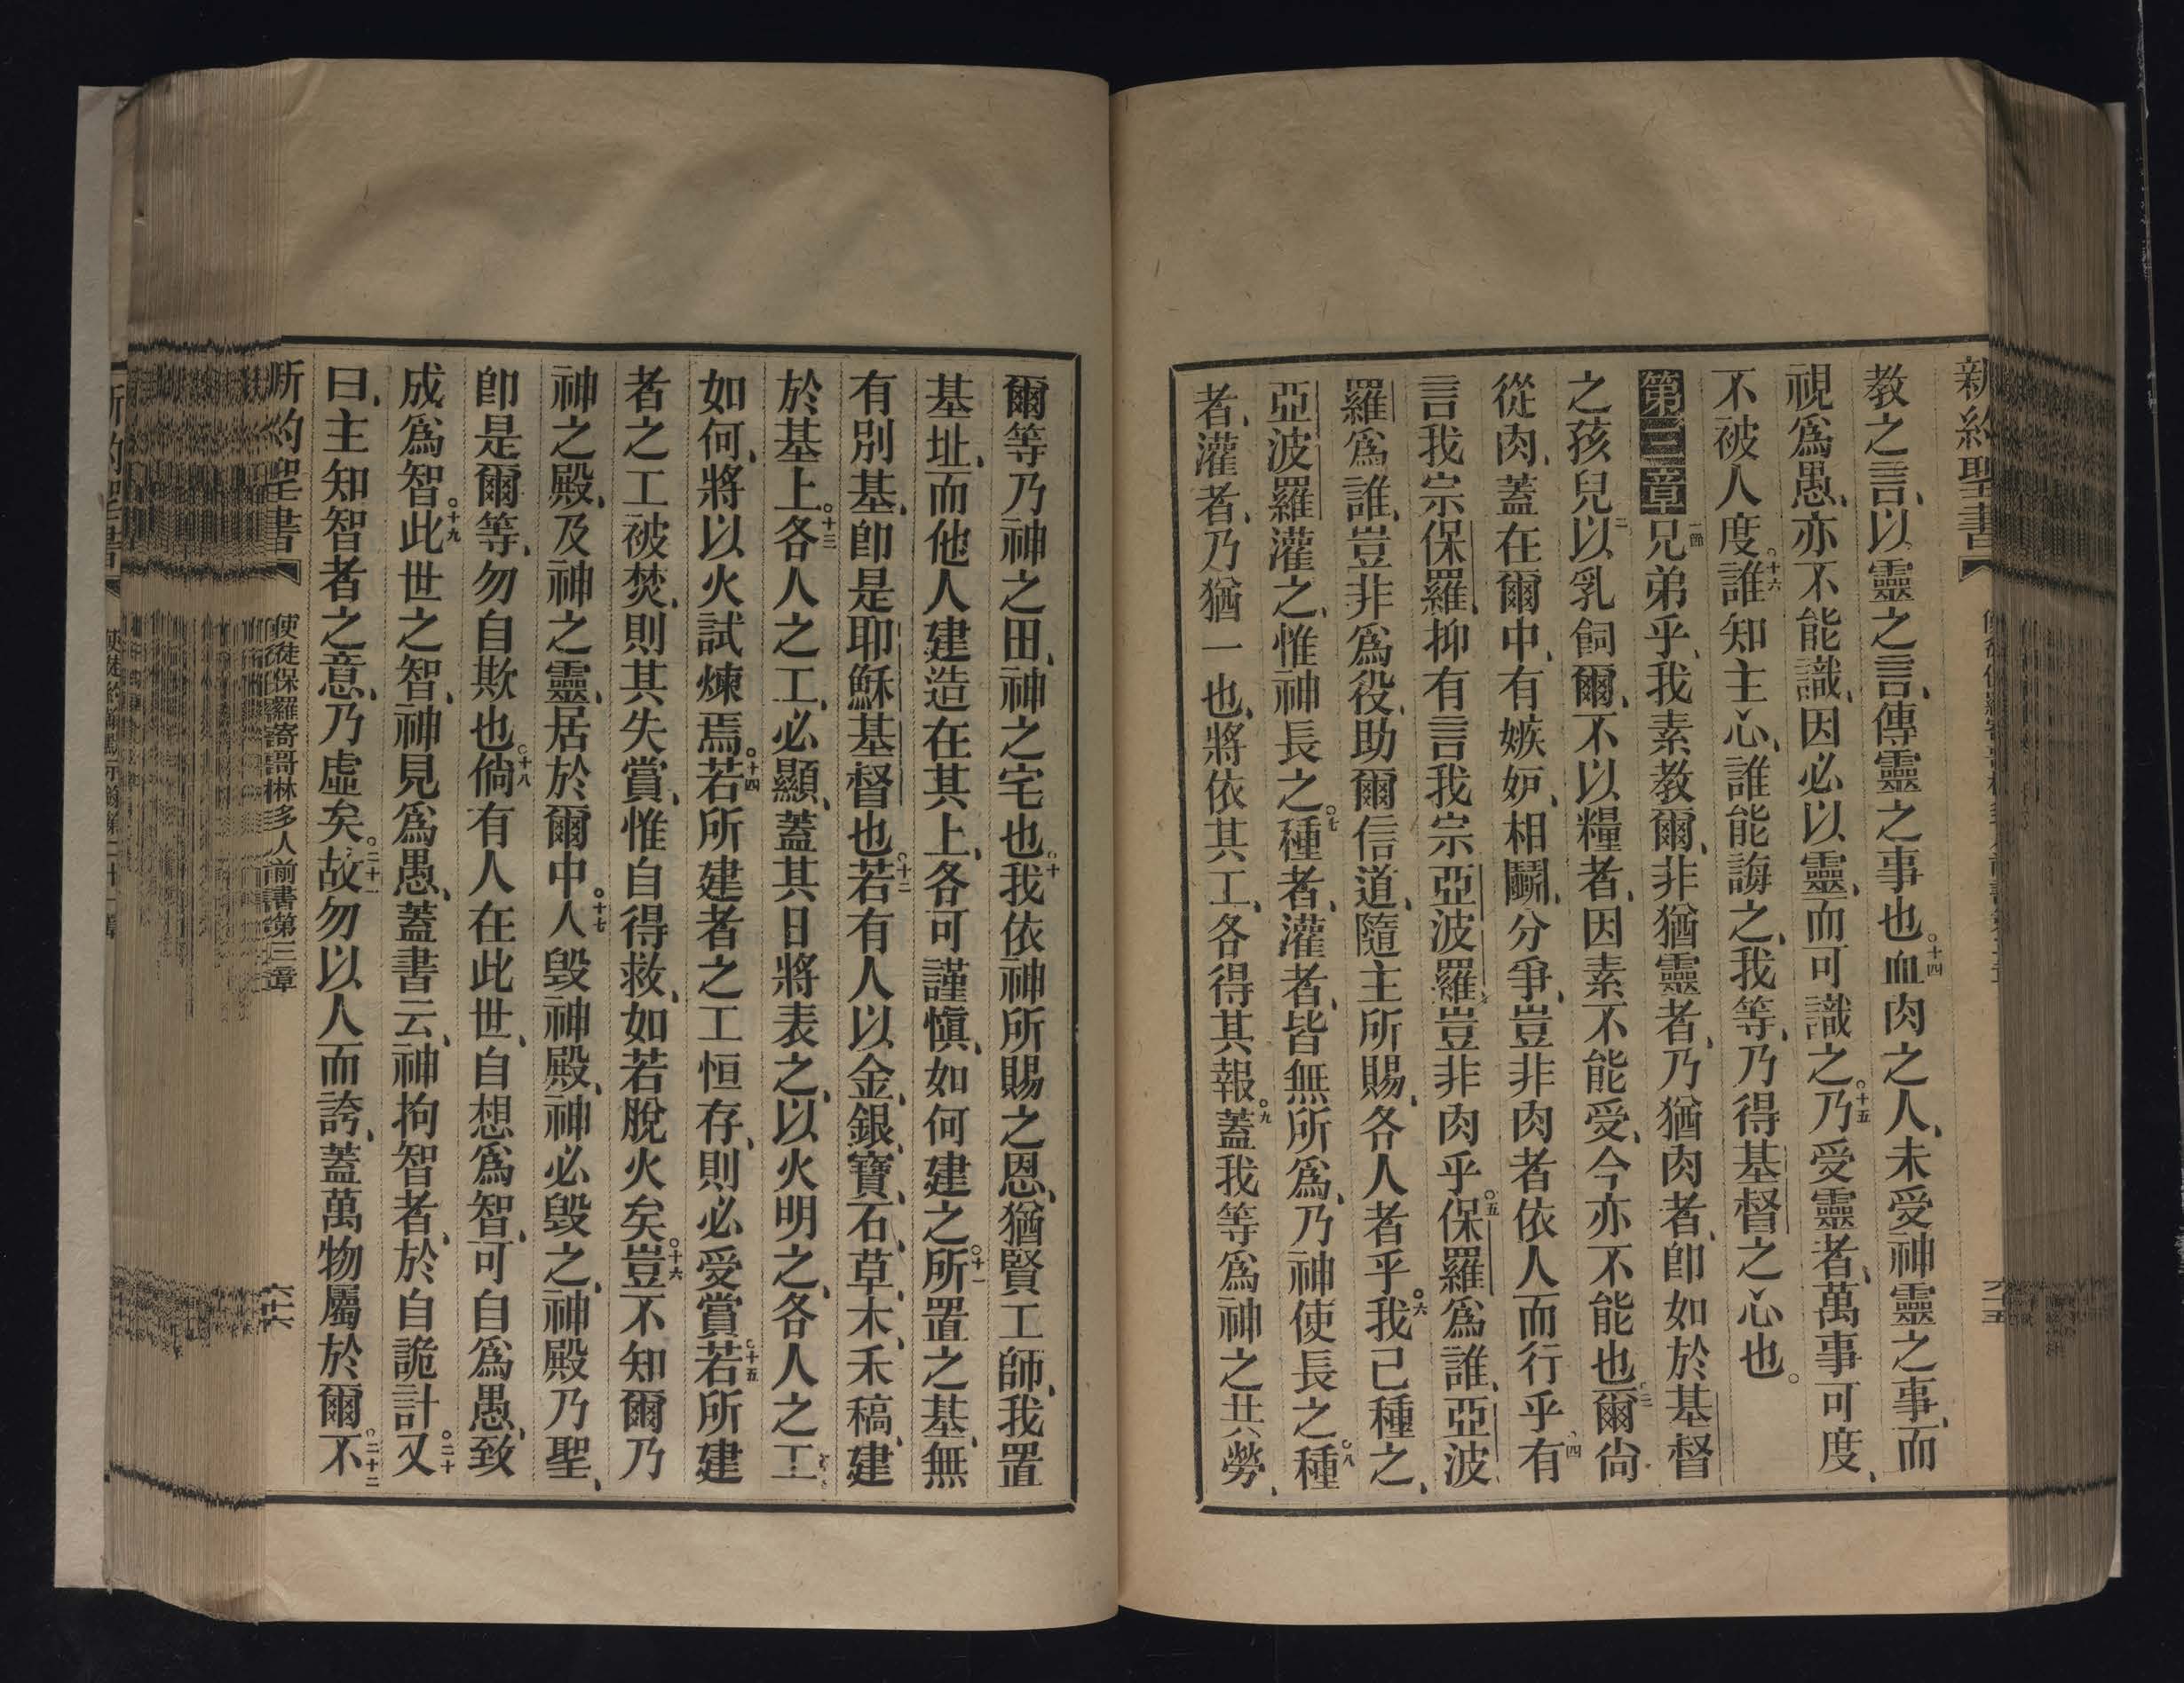 新約聖書
教之言、以靈之言、傳靈之事也。十四血肉之人、未受神靈之事、而
視爲愚、亦不能識、因必以靈、而可識之。十五乃受靈者、萬事可度、
不被人度。十六誰知主心、誰能誨之、我等、乃得基督之心也。
第三章一節兄弟乎、我素教爾、非猶靈者、乃猶肉者、卽如於基督
之孩兒二以乳飼爾、不以糧者、因素不能受、今亦不能也三爾尙
從肉、蓋在爾中、有嫉妒、相鬬、分爭、豈非肉者依人而行乎四有
言我宗保羅、抑有言我宗亞波羅、豈非肉乎。五保羅爲誰、亞波
羅爲誰、豈非爲役、助爾信道、隨主所賜、各人者乎。六我已種之、
亞波羅灌之、惟神長之。七種者、灌者、皆無所爲、乃神使長之。八種
者、灌者、乃猶一也、將依其工、各得其報。九蓋我等爲神之共勞、
爾等乃神之田、神之宅也。十我依神所賜之恩、猶賢工師、我置
基址、而他人建造在其上、各可謹愼、如何建之。十一所置之基、無
有別基、卽是耶穌基督也。十二若有人以金、銀、寶、石、草、木、禾稿、建
於基上。十三各人之工、必顯、蓋其日將表之、以火明之、各人之工
如何、將以火試煉焉。十四若所建者之工恒存、則必受賞。十五若所建
者之工被焚、則其失賞、惟自得救、如若脫火矣。十六豈不知爾乃
神之殿、及神之靈、居於爾中。十七人毀神殿、神必毀之、神殿乃聖、
卽是爾等、勿自欺也。十八倘有人在此世、自想爲智、可自爲愚、致
成爲智。十九此世之智、神見爲愚、蓋書云、神拘智者、於自詭計。二十又
曰、主知智者之意、乃虛矣。二十一故勿以人而誇、蓋萬物屬於爾。二十二不
新約聖書
使徒保羅寄哥林多人前書第三章
六十六